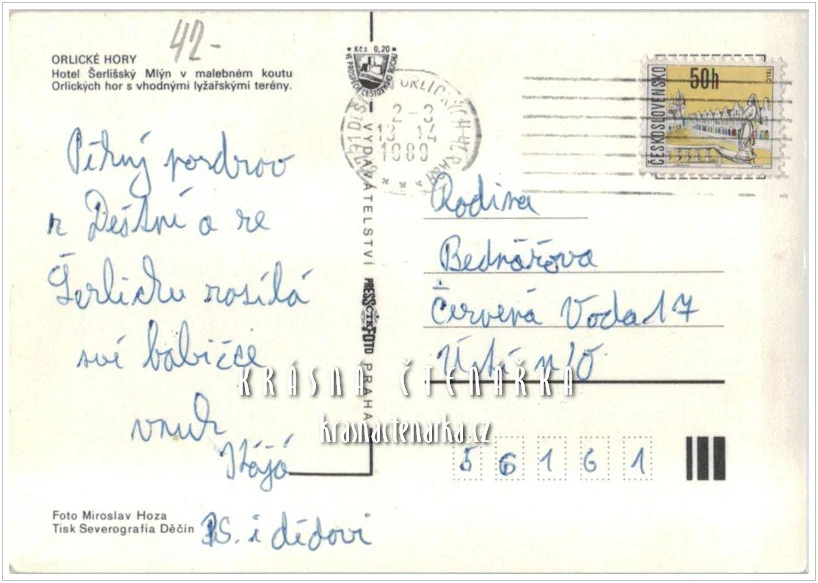 ORLICKÉ HORY
Hotel Šerlišský Mlýn v malebném koutu
Orlických hor s vhodnými lyžařskými terény.
42-
Pěkný pozdrav
z Deštní a ze
Šerlichu zasílá
své babičce
vnuk
Kájá
PS. i dědovi
Foto Miroslav Hoza
Tisk Severografia Děčín
Kčs 0,20
VYDAVATELSTVÍ
PRESSFOTO
PRAHA
V ORLICKÝCH H.
2-3
13 14
1989
ČESKOSLOVENSKO
50h
TELČ
Rodina
Bednářova
Červená Voda 17
Ústí n/O
56161
KRÁSNÁ ČTENAŘKA
krasnactenarka.cz